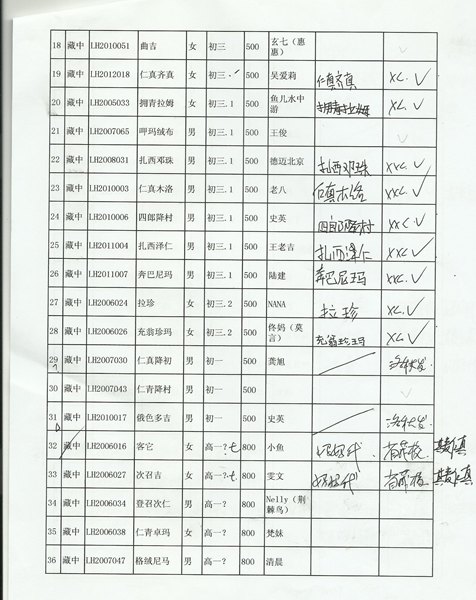 18 藏中 LH2010051 曲吉 女 初三 500 玄七（惠惠）
19 藏中 LH2012018 仁真齐真 女 初三. 500 吴爱莉 仁真齐真
20 藏中 LH2005033 拥青拉姆 女 初三.1 500 鱼儿水中游 拥青拉姆
21 藏中 LH2007065 呷玛绒布 男 初三.1 500 王俊
22 藏中 LH2008031 扎西邓珠 男 初三.1 500 德迈北京 扎西邓珠
23 藏中 LH2010003 仁真木洛 男 初三.1 500 老八 仁真木洛
24 藏中 LH2010006 四郎降村 男 初三.1 500 史英 四郎降村
25 藏中 LH2011004 扎西泽仁 男 初三.1 500 王老吉 扎西泽仁
26 藏中 LH2011007 奔巴尼玛 男 初三.1 500 陆建 奔巴尼玛
27 藏中 LH2006024 拉珍 女 初三.2 500 NANA 拉珍
28 藏中 LH2006026 充翁珍玛 女 初三.2 500 佟妈（莫言） 充翁珍玛
29 藏中 LH2007030 仁真降初 男 初一 500 龚旭
30 藏中 LH2007043 仁青降村 男 初一 500
31 藏中 LH2010017 俄色多吉 男 初一 500 史英
32 藏中 LH2006016 客它 女 高一? 800 小鱼
33 藏中 LH2006027 次召吉 女 高一? 800 雯文
34 藏中 LH2006034 登召次仁 男 高一? 800 Nelly（荆棘鸟）
35 藏中 LH2006038 仁青卓玛 女 高一? 800 梵妹
36 藏中 LH2007047 格绒尼马 男 高一? 800 清晨